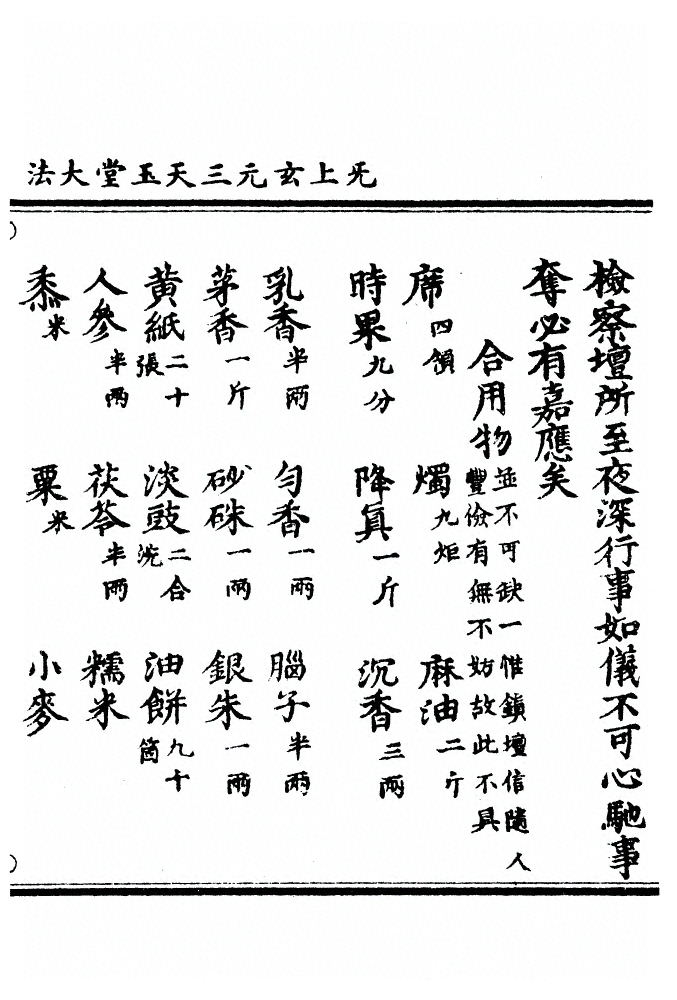 无上玄元三天玉堂大法
檢察壇所至夜深行事如儀不可心馳事
奪必有嘉應矣
合用物 並不可缺一惟鎖壇信隨人
豐儉有無不妨故此不具
席四領 燭九炬 麻油二斤
時果九分 降真一斤 沉香三兩
乳香半兩 勻香一兩 腦子半兩
茅香一斤 砂硃一兩 銀朱一兩
黃紙二十張 淡豉二合洗 油餅九十箇
人參半兩 茯苓半兩 糯米
黍米 粟米 小麥